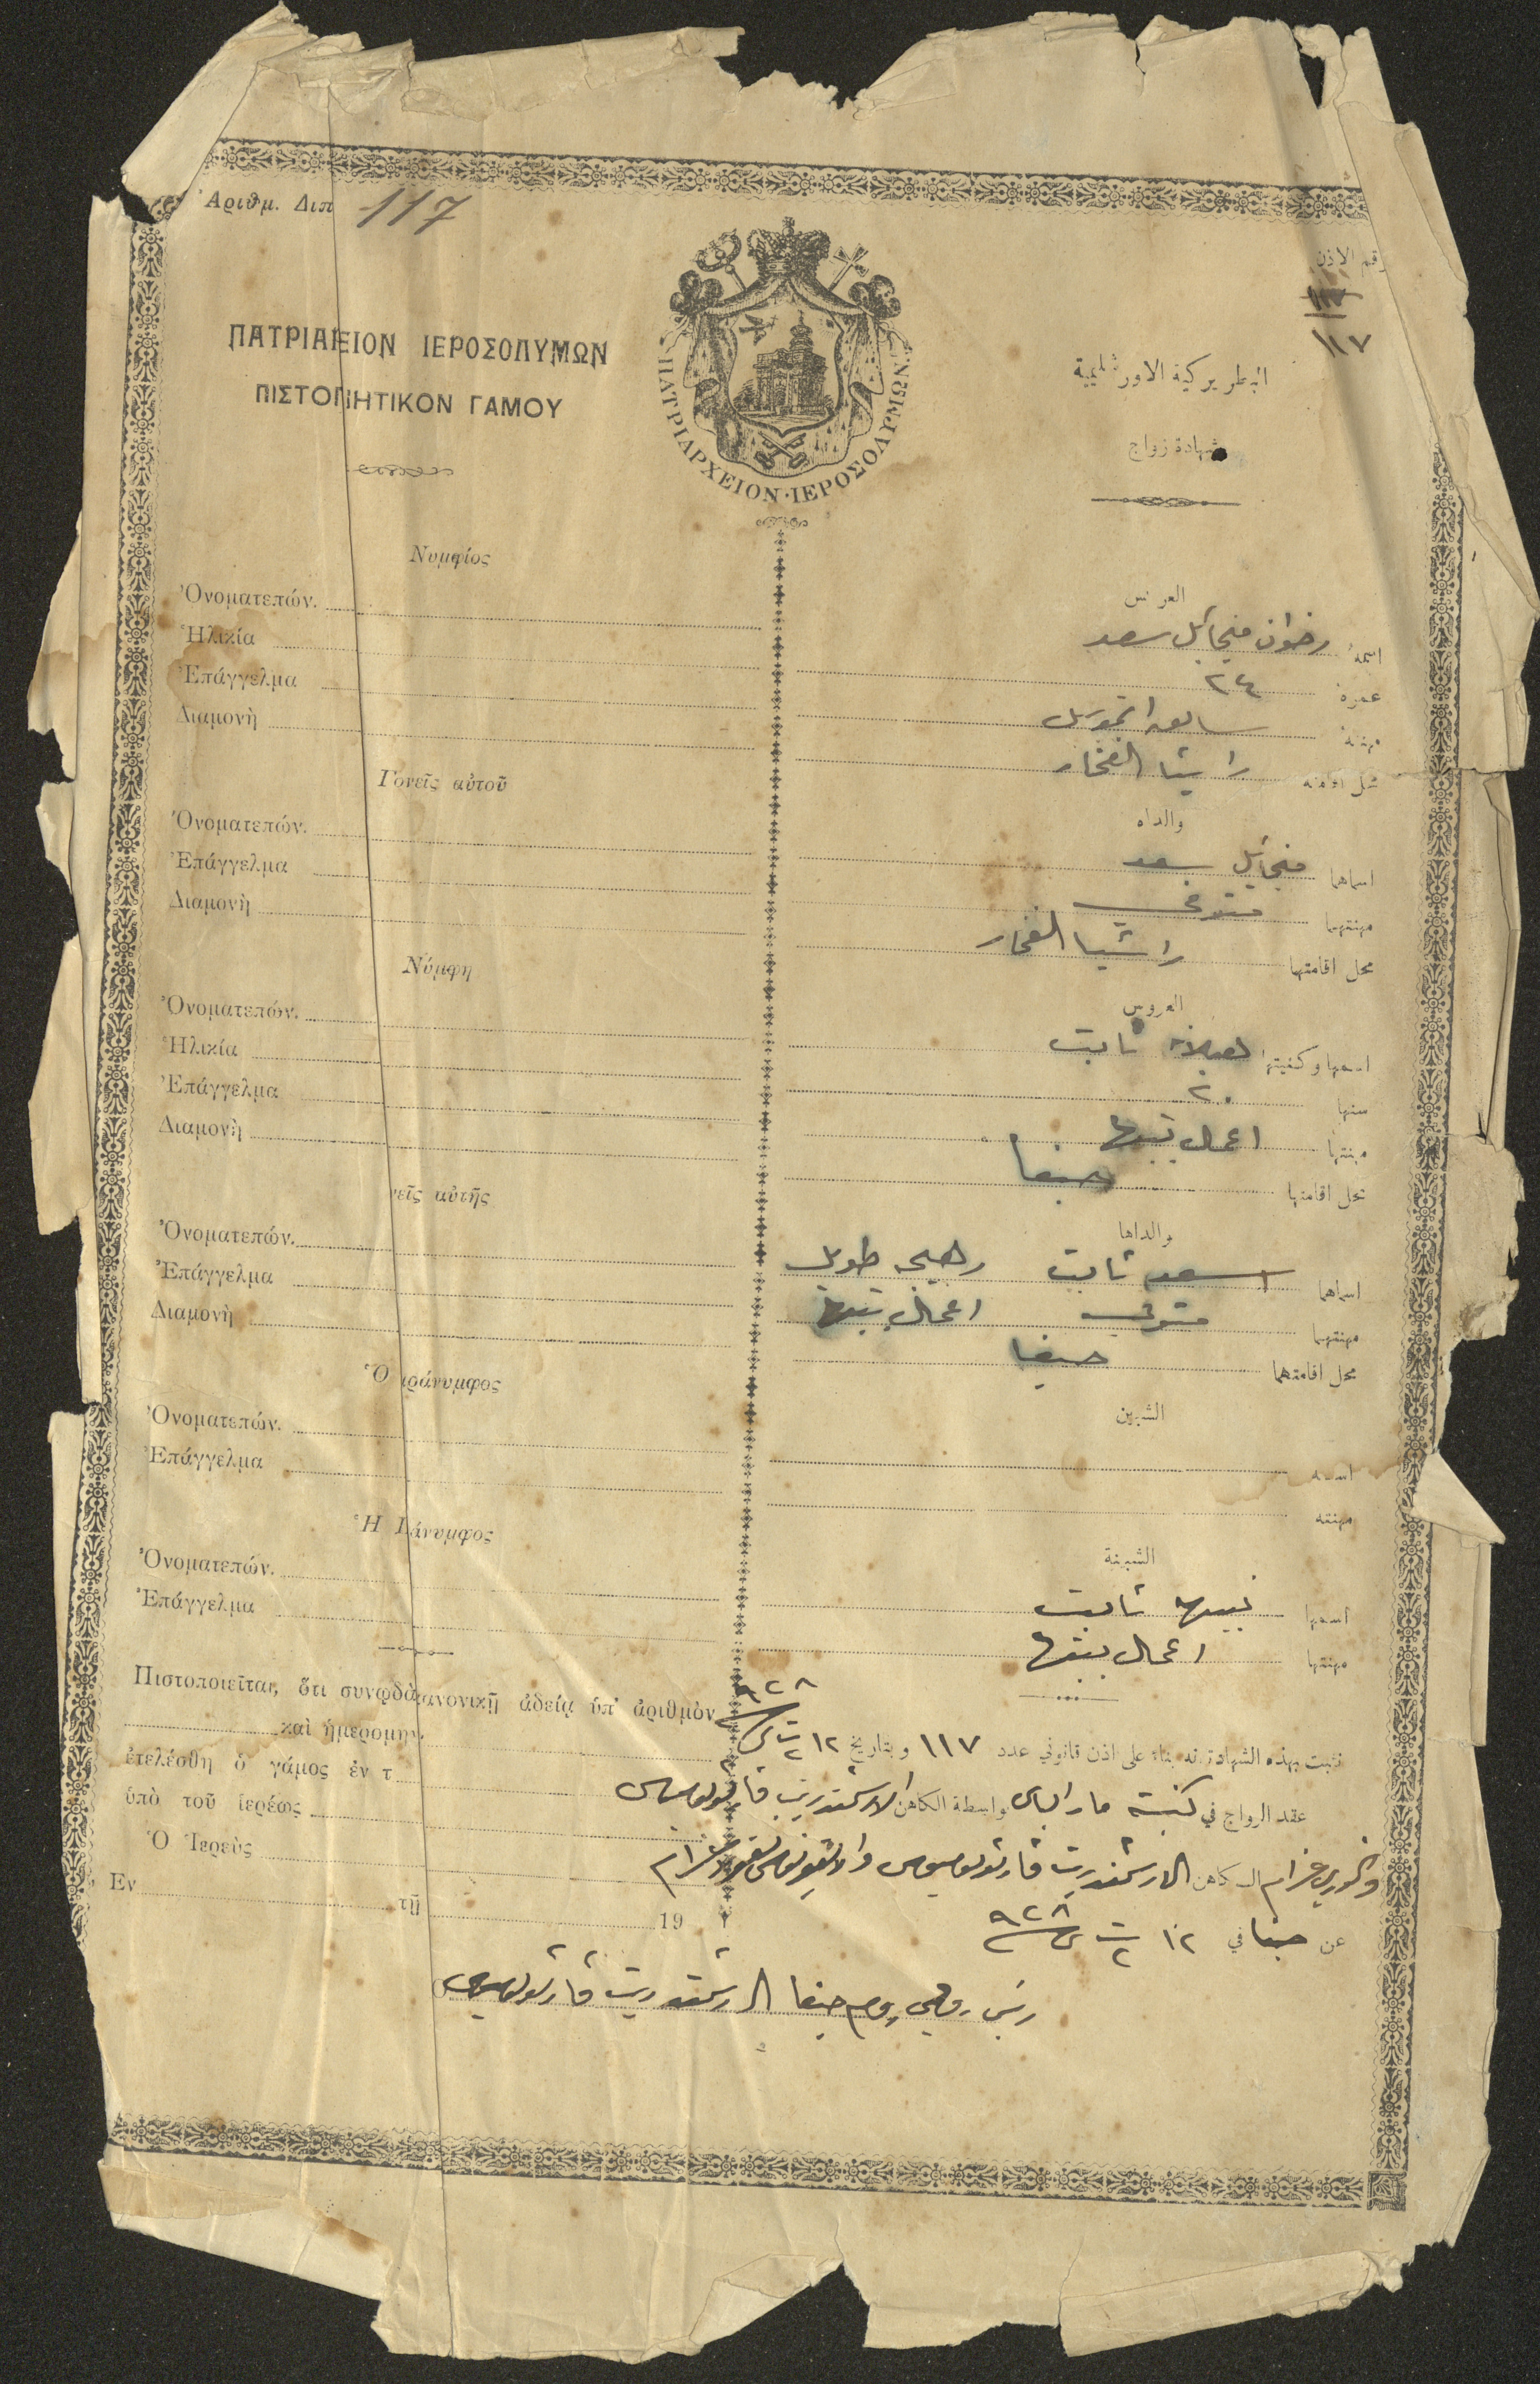 Ἀριθμ. Διπ 117
رقم الاذن
١١٧
ΠΑΤΡΙΑ ΕΙΟΝ ΙΕΡΟΣΟΛΥΜΩΝ
ΠΙΣΤΟΠΙΗΤΙΚΟΝ ΓΑΜΟΥ
ΠΑΤΡΙΑΡΧΕΙΟΝ·ΙΕΡΟΣΟΛΥΜΩΝ
البطريركية الاورشليمية
شهادة زواج
Νυμφίος
Ὀνοματεπών.
Ἡλικία
Ἐπάγγελμα
Διαμονὴ
Γονεῖς αὐτοῦ
Ὀνοματεπών.
Ἐπάγγελμα
Διαμονὴ
Νύμφη
Ὀνοματεπών.
Ἡλικία
Ἐπάγγελμα
Διαμονὴ
νεῖς αὐτῆς
Ὀνοματεπών.
Ἐπάγγελμα
Διαμονὴ
Ὁ ράνυμφος
Ὀνοματεπών.
Ἐπάγγελμα
Ἡ άνυμφος
Ὀνοματεπών.
Ἐπάγγελμα
Πιστοποιεῖται, ὅτι συνῳδὰ ανονικῇ ἀδείᾳ ὑπ' ἀριθμὸν
καὶ ἡμερομην.
ἐτελέσθη ὁ γάμος ἐν τ
ὑπὸ τοῦ ἱερέως
Ὁ Ἱερεὺς
Εν τῇ 19
العريس
اسمه رضوان ميخائيل سعد
عمره ٢٤
مهنته
محل اقامته راشيا الفخار
والداه
اسماهما ميخائيل سعد
مهنتهما متوفي
محل اقامتهما راشيا الفخار
العروس
اسمها وكنيتها هيلانة ثابت
سنها ٢٠
مهنتها اعمال بيتها
محل اقامتها حيفا
والداها
اسماهما اسعد ثابت طويل
مهنتهما متوفي اعمال بيتها
محل اقامتهما حيفا
الشبين
اسمه
مهنته
الشبينة
اسمها نبيها ثابت
مهنتها اعمال بيتها
نثبت بهذه الشهادة انه بناء على اذن قانوني عدد ١١٧ وبتاريخ ١٢ ت ٢ ٩٢٨
عقد الزواج في كنيسة مار الياس بواسطة الكاهن الارشمندريت
والخوري الكاهن الارشمندريت
عن حيفا في ١٢ ت ٢ ٩٢٨
رئيس روحي روم حيفا الارشمندريت